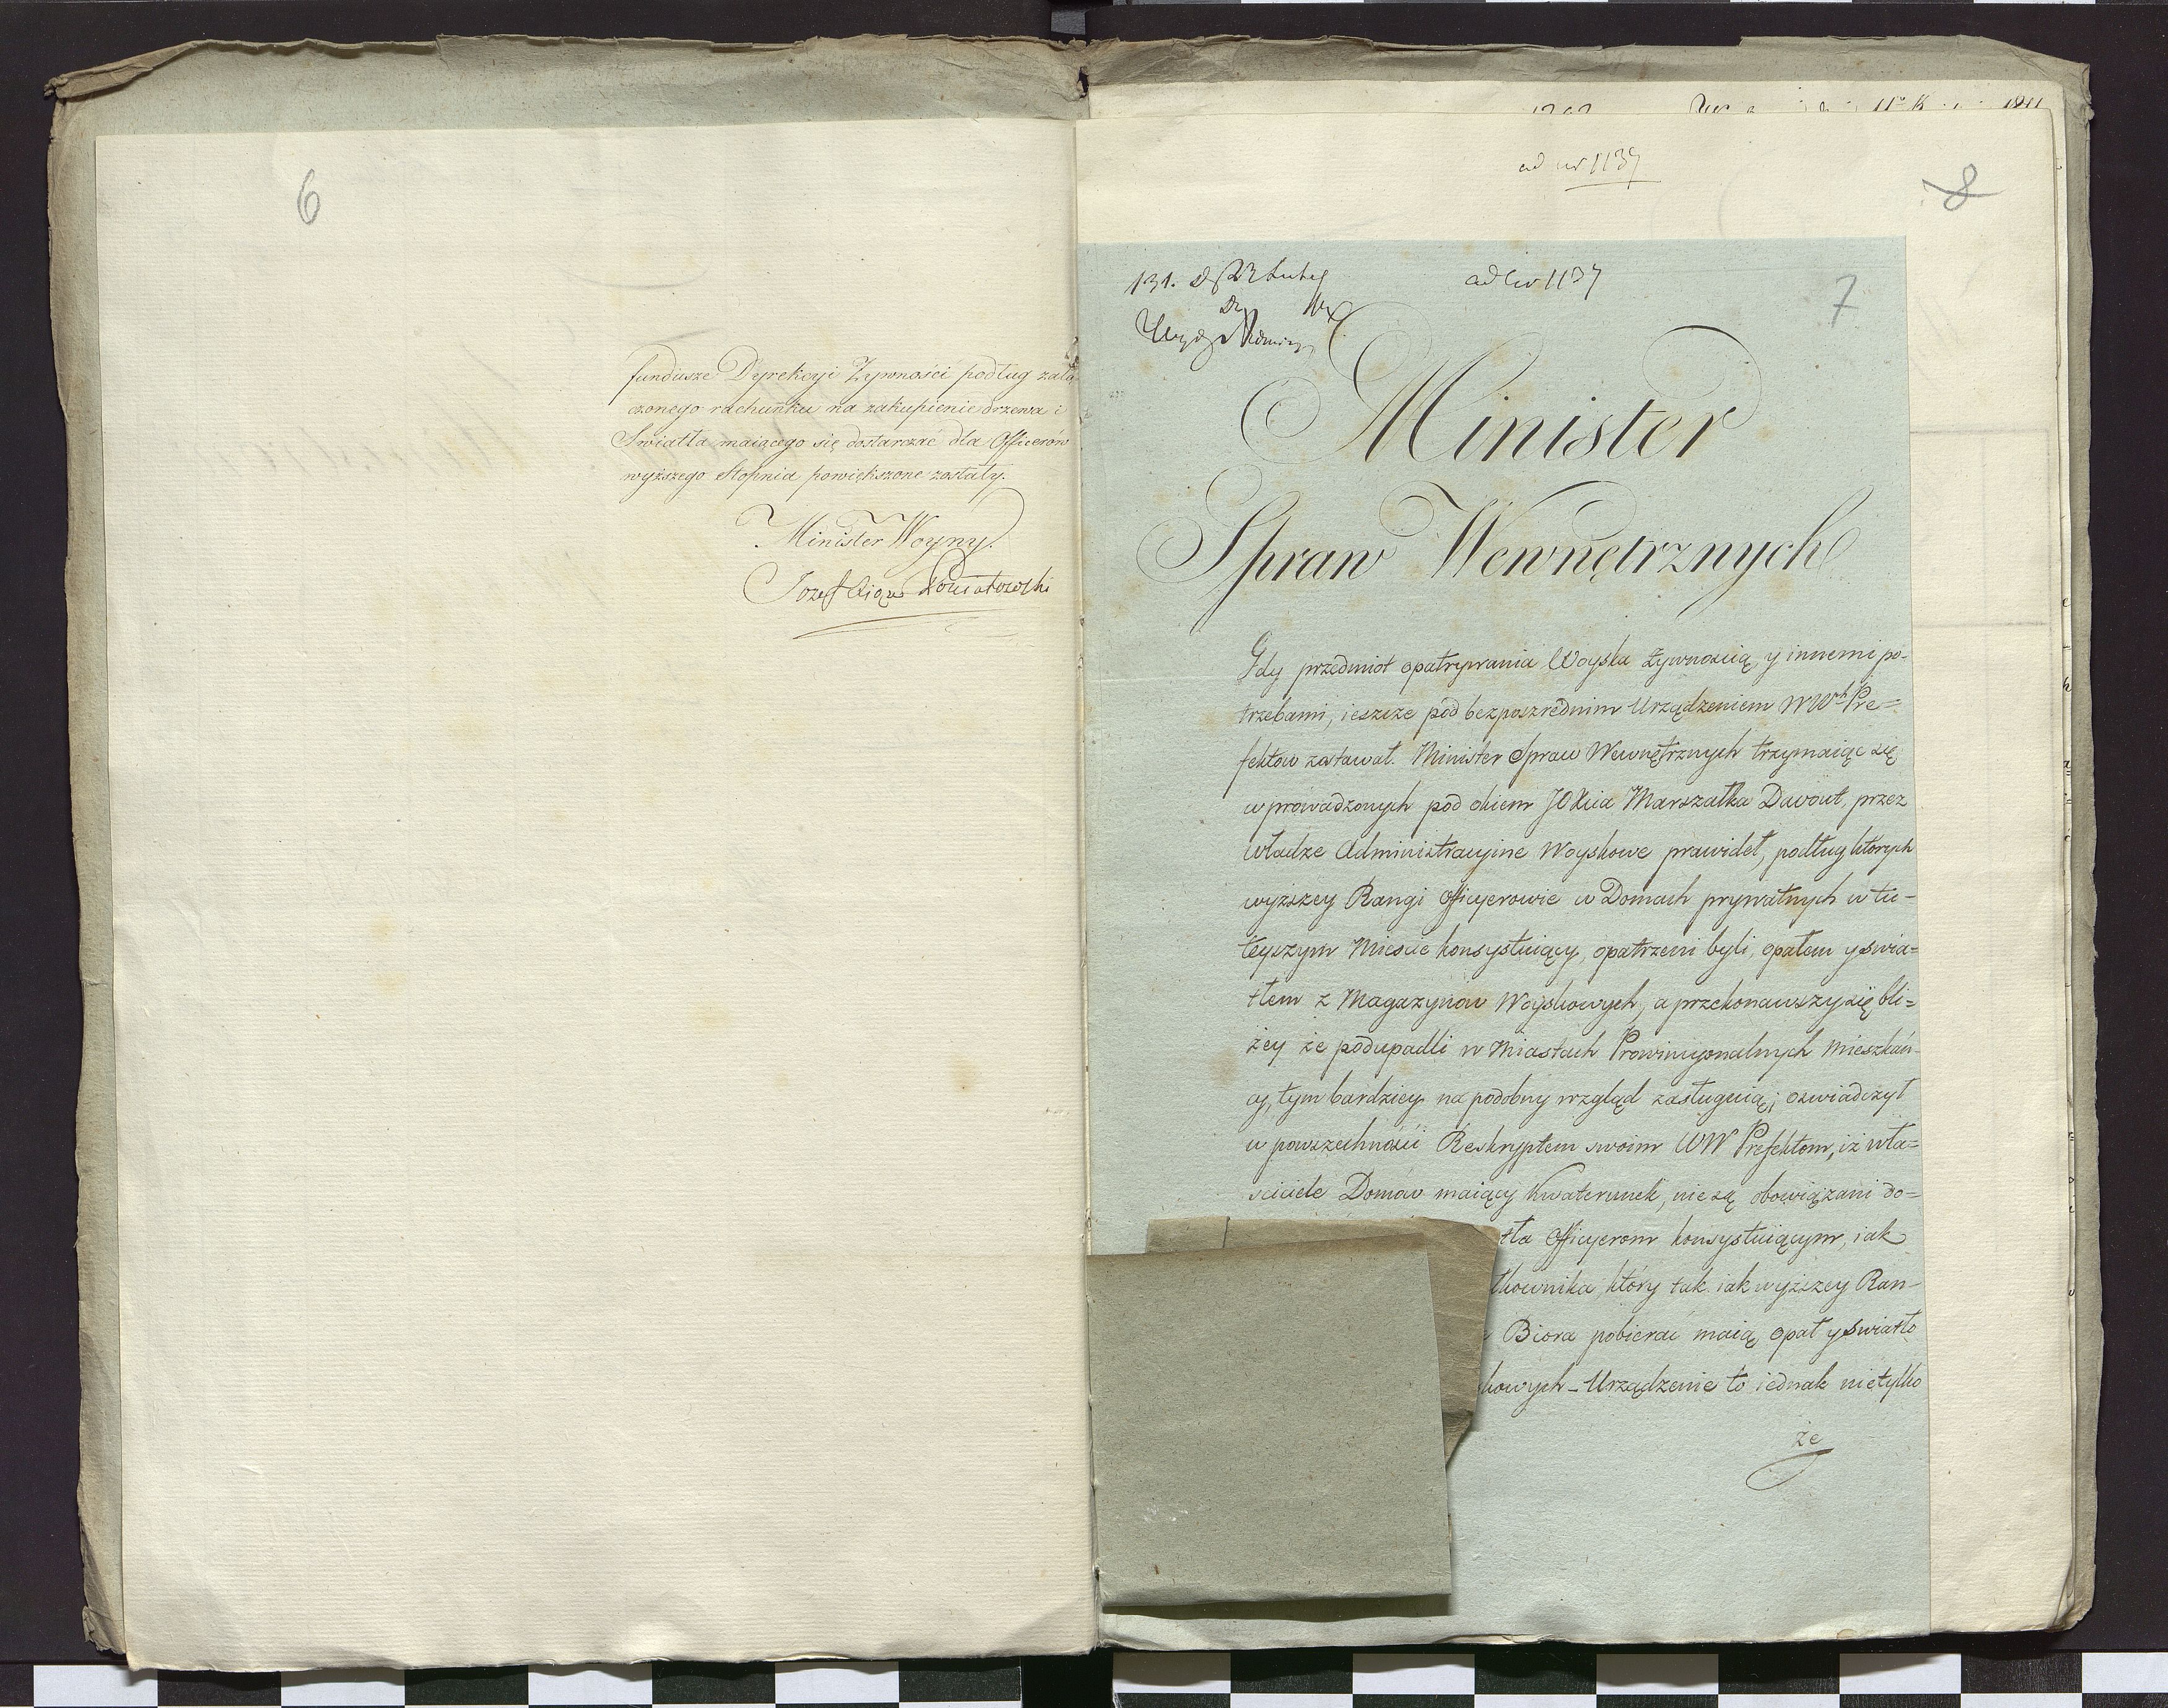 6
fundusze Dyrekcyi Żywności podług zała-
czonego rachunku na zakupienie drzewa i
Swiatła maiącego się dostarczać dla Officerów
wyższego Stopnia powiększone zostały.
Minister Woyny.
Jozef Xiąże Poniatowski
ad nr 1137
8
131. 23 Luteg
ad nr 1137
7
Minister
Spraw Wewnętrznych
Gdy przedmiot opatrywania Woyska żywnoscią y innemi po-
trzebami, ieszcze pod bezposzrednim Urządzeniem WWch Pre=
fektow zostawał. Minister Spraw Wewnętrznych trzymaiąc się
wprowadzonych pod okiem JOXcia Marszałka Davout, przez
Władze Administracyine Woyskowe prawideł, podług ktorych
wyższey Rangi Officyerowie w Domach prywatnych w tu-
teyszym Miescie konsystuiący, opatrzeni byli, opałem y swia=
tłem z Magazynow Woyskowych, a przekonawszy się bli=
żey że podupadli w Miastach Prowincyonalnych Mieszkań-
cy, tym bardziey na podobny wzgląd zasługuią; oswiadczył
w powszechności Reskryptem swoim WW Prefektom, iż wła=
sciciele Domów maiący Kwaterunek, nie są obowiązani do=
tła Officyerom konsystuiącym, iak
kownika, który tak iak wyższey Ran-
Biora pobierać maią opał y swiatło
kowych - Urządzenie to iednak nietylko
że